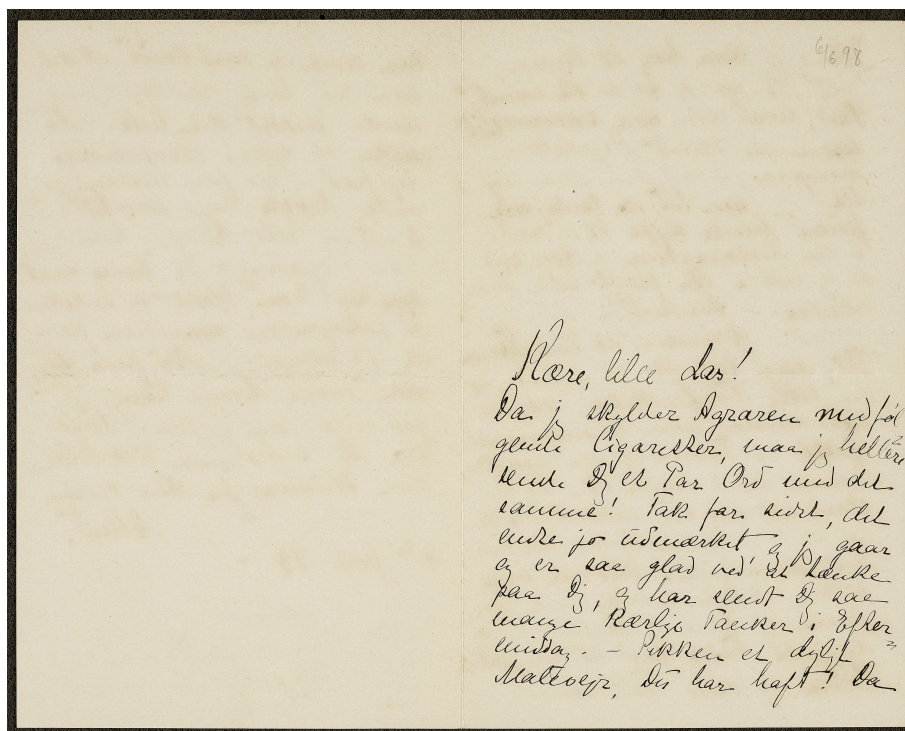 6/6 98
Kære, lille Las!
Da jeg skylder Agraren medføl
gende Cigaretter, maa jeg hellere
sende Dig et Par Ord med det
samme! Tak for sidst, det
endte jo udmærket, og jeg gaar
og er saa glad ved at tænke
paa Dig, og har sendt Dig saa
mange Kærlige Tanker i Efter
middag. – et dejligt
Malevejr, Du har haft! Da